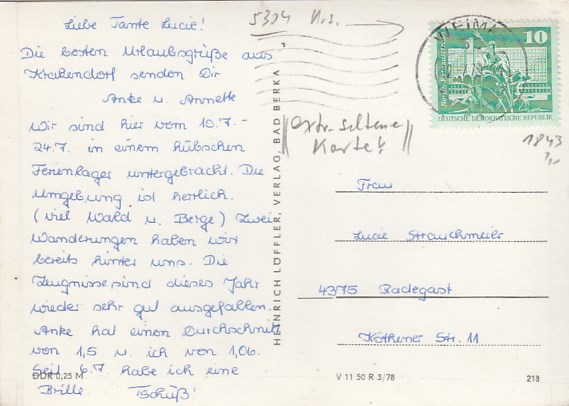 Liebe Tante Lucie!
Die besten Urlaubsgrüße aus
Krakendorf senden Dir
Anke u. Annette
Wir sind hier vom 10.7.-
24.7. in einem hübschen
Ferienlager untergebracht. Die
Umgebung ist herrlich.
(viel Wald u. Berge) Zwei
Wanderungen haben wir
bereits hinter uns. Die
Zeugnisse sind dieses Jahr
wieder sehr gut ausgefallen.
Anke hat einen Durchschnitt
von 1,5 u. ich von 1,06.
Seit 6.7 habe ich eine
Brille. Tschüß!
DDR 0,25 M
5304
HEINRICH LÖFFLER, VERLAG, BAD BERKA
extr. seltene
Karte!
WEIM
10
DEUTSCHE DEMOKRATISCHE REPUBLIK
1843
Frau
Lucie Strauchmeiler
4375 Radegast
Köthener Str. 11
V 11 50 R 3/78
218